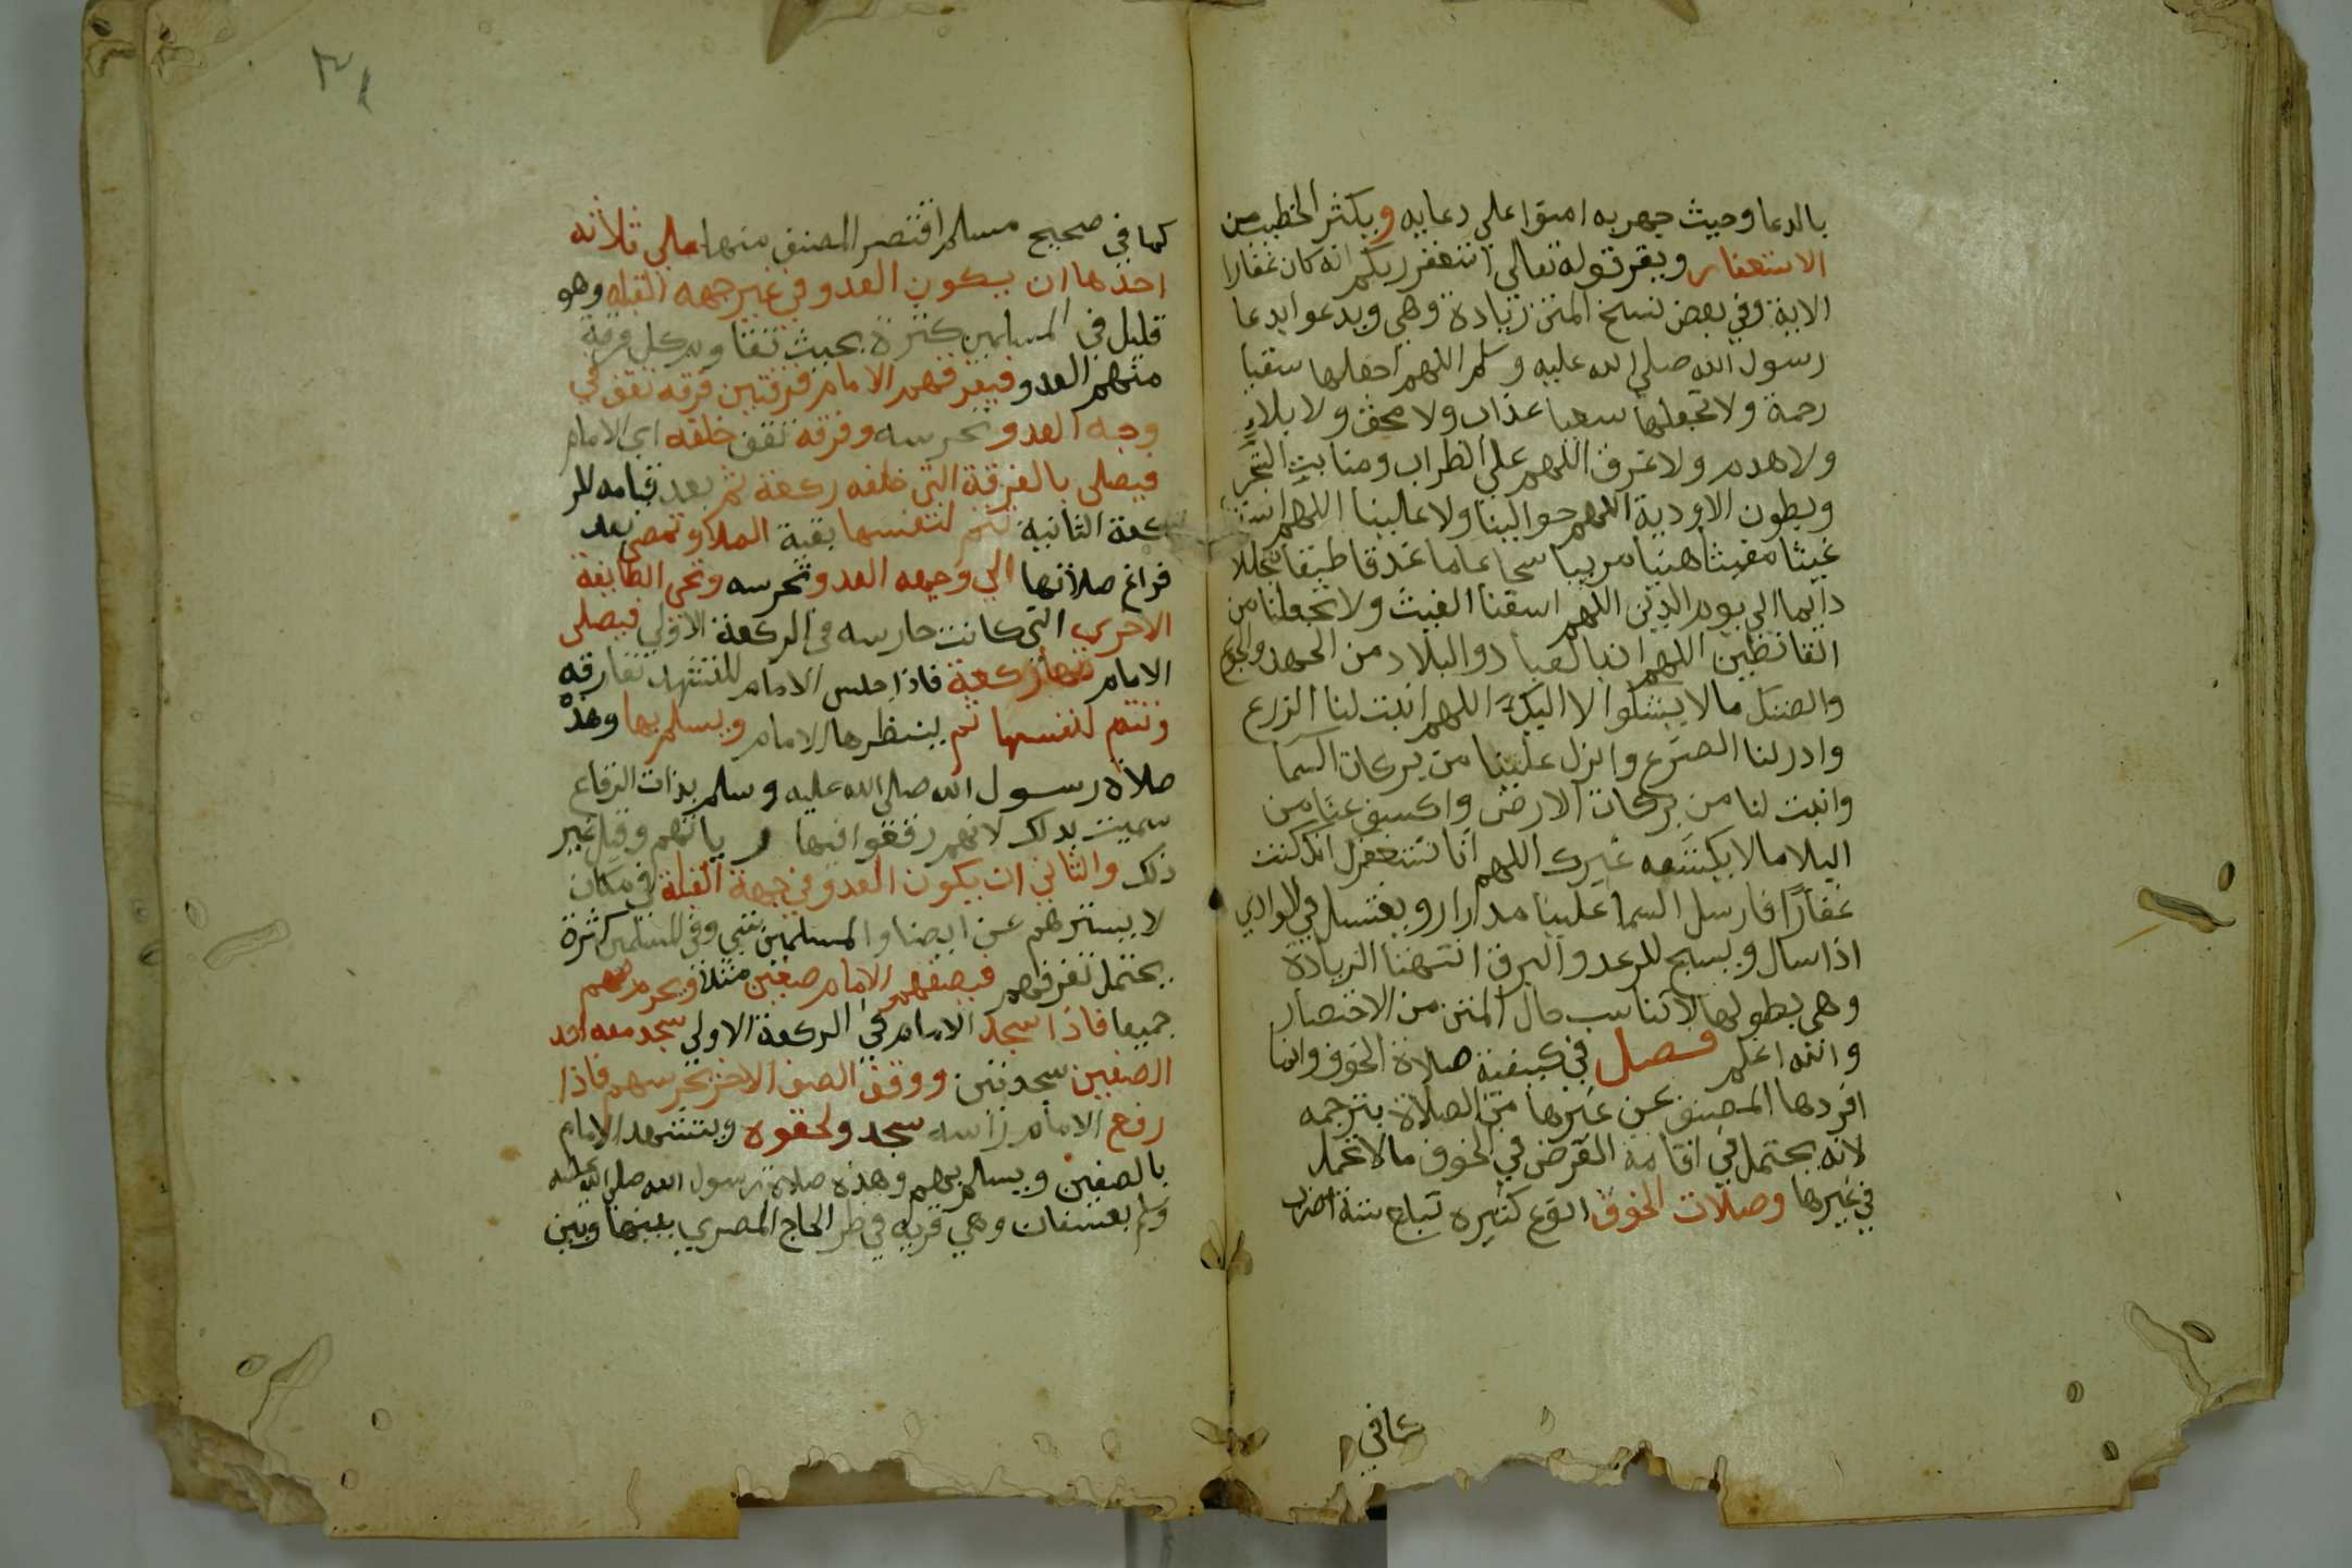 بالدعا وحيث جهر به امنوا علي دعايه ويكثر الخطيب من
الاستغفار ويقر قوله تعالي استغفرر ربكم انه كان غفارا
الاية وفي بعض نسخ المتن زيادة وهي ويدعوا بدعا
رسول الله صلي الله عليه وسلم اللهم اجعلها سقيا
رحمة ولا تجعلها سقيا عذاب ولا محق ولا بلاءٍ
ولا هدم ولا غرق اللهم علي الظراب ومنابت الشجر
وبطون الاودية اللهم حوالينا ولا علينا اللهم اسقنا
غيثا مغيثا هنيا مرييا سحا عاما غدقا طبقا مجللا
دايما الي يوم الدين اللهم اسقنا الغيث ولا تجعلنا من
القانطين اللهم ان بالعباد والبلاد من الجهد والجوع
والضنك ما لا يشكوا الا اليك اللهم انبت لنا الزرع
وادر لنا الضرع وانزل علينا من بركات السما
وانبت لنا من بركات الارض واكسف عنا من
البلا ما لا يكشفه غيرك اللهم انا نستغفرك انك كنت
غفارًا فارسل السما علينا مدرارا ويغتسل في الوادي
اذا سال ويسبح للرعد والبرق انتهنا الزيادة
وهي بطولها لا تناسب حال المتن من الاختصار
والله اعلم فصل في كيفية صلاة الخوف وانما
افردها المصنف عن غيرها من الصلاة بترجمه
لانه يحتمل في اقامة الفرض في الخوف ما لا يحتمل
في غيرها وصلات الخوف انوع كثيره تبلغ ستة اضرب
كما في
كما في صحيح مسلم اقتصر المصنف منها علي ثلاثه
احدها ان يكون العدو في غير جهه القبله وهو
قليل في المسلمين كثرة بحيث تقاوم كل فرقة
منهم العدو فيفرقهم الامام فرقتين فرقه تقف في
وجه العدو تحرسه وفرقه تقف خلفه اي الامام
فيصلي بالفرقة التي خلفه ركعة ثم بعد قيامه للر
كعة الثانية تتم لنفسها بقية الصلاة وتمضي بعد
فراغ صلاتها الي وجهه العدو تحرسه وتجي الطايفة
الاخري التي كانت حارسه في الركعة الاولي فيصلي
الامام بها ركعة فاذا جلس الامام للتشهد تفارقه
وتتم لنفسها ثم ينتظرها الامام ويسلم بها وهذه
صلاة رسول الله صلي الله عليه وسلم بذات الرقاع
سميت بذلك لانهم رقعوا فيها راياتهم وقيل غير
ذلك والثاني ان يكون العدو في جهة القبلة في مكان
لا يسترهم عن ابصار المسلمين شي وفي المسلمين كثرة
يحتمل تفرقهم فيصفهم الامام صفين مثلا ويحرم بهم
جميعا فاذا سجد الامام في الركعة الاولي سجد معه احد
الصفين سجدتين ووقف الصف الاخر يحرسهم فاذا
رفع الامام راسه سجد ولحقوه ويتشهد الامام
بالصفين ويسلم بهم وهذه صلاة رسول الله صلي الله عليه
وسلم بعسفان وهي قريه في طر الحاج المصري بينها وبين